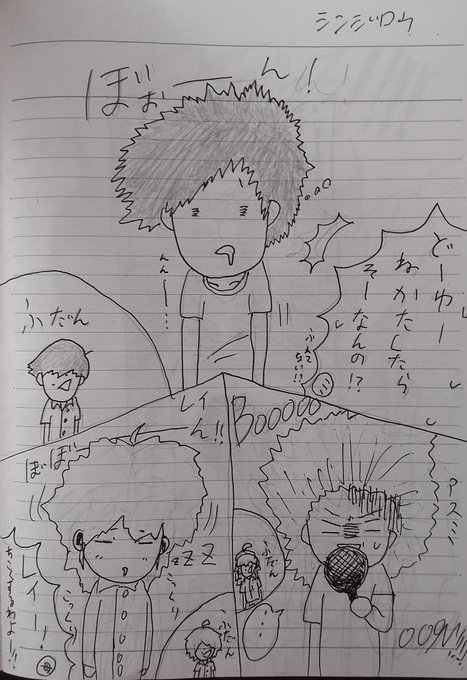 シンジロウ
ぼぉーーん!
どーゆー
ねかたしたら
そーなんの!?
んんー…
ふだん
レイ
ん!!
ぼぼ
ZZZ
こっくり
こっくり
レイー!
ちこくするわよー!!
ふだん
BOOOOO
アスミ
ふだん